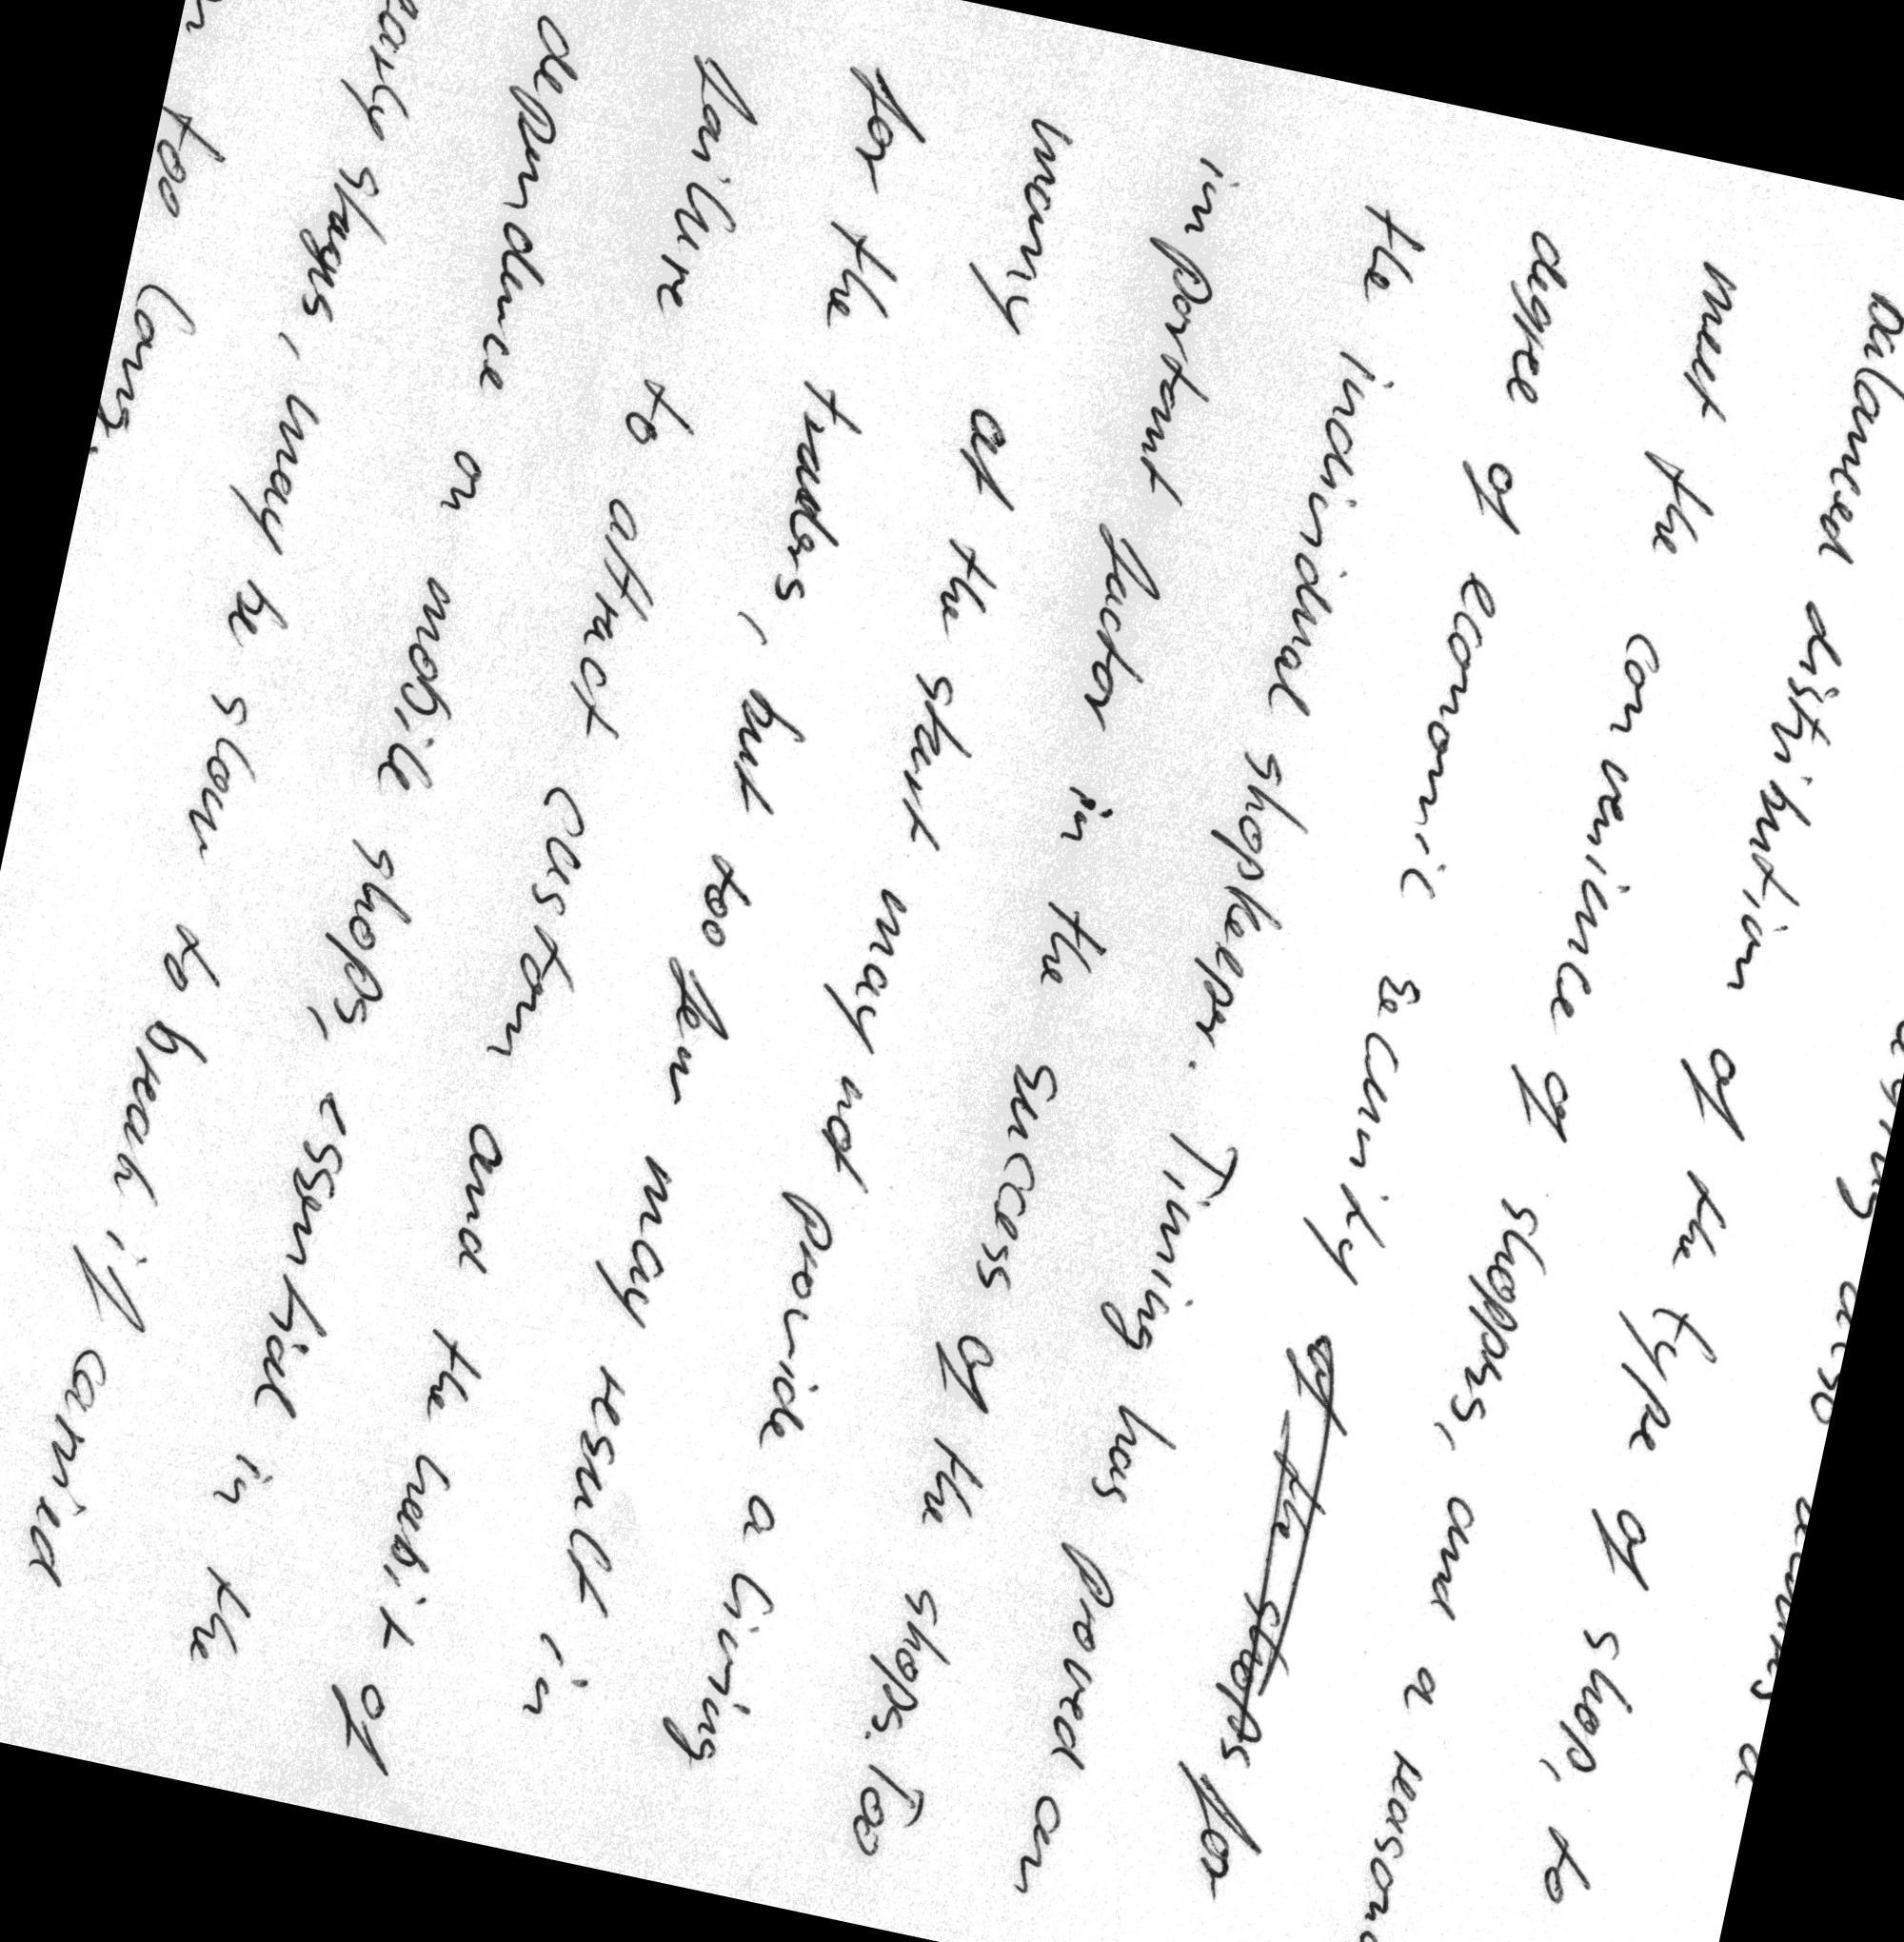 balanced distribution of the type of shop, to
meet the convenience of shoppers, and a
degree of economic security for
the individual shopkeeper. Timing has proved an
important factor in the success of the shops. Too
many at the start may not provide a living
for the traders, but too few may result in
failure to attract custom and the habit of
dependence on mobile shops, essential in the
early stages, may be slow to break if carried
too long.